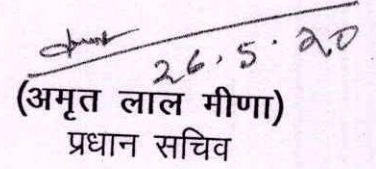 26.5.20
(अमृत लाल मीणा)
प्रधान सचिव